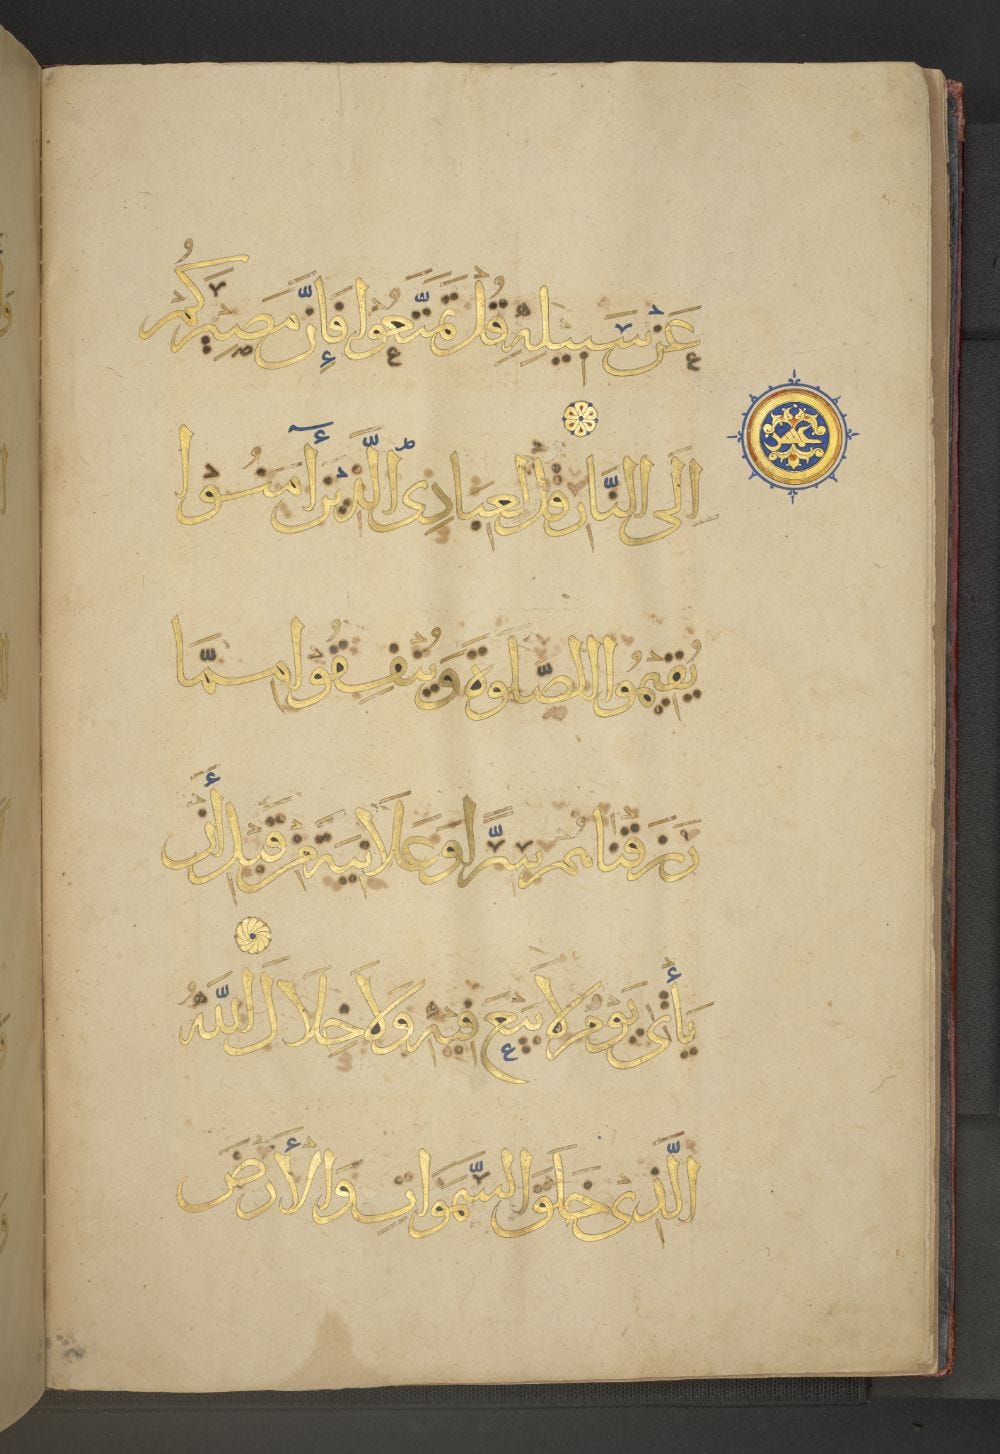 عَن سَبِيلِهِ قُل تَمَتَّعُوا فَإِنَّ مَصِيرَكُم
عشر
اِلَى النَّارِ قُل لِعِبَادِىَ الَّذِينَ آمَنُوا
يُقِيمُوا الصَّلٰوةَ وَيُنفِقُوا مِمَّا
رَزَقنَاهُم سِرًّا وَعَلَانِيَةً مِن قَبلِ أَن
يَأتِىَ يَومٌ لَا بَيعَ فِيهِ وَلَا خِلَالَ اللَّهُ
الَّذِى خَلَقَ السَّمَوَاتِ وَالأَرضَ